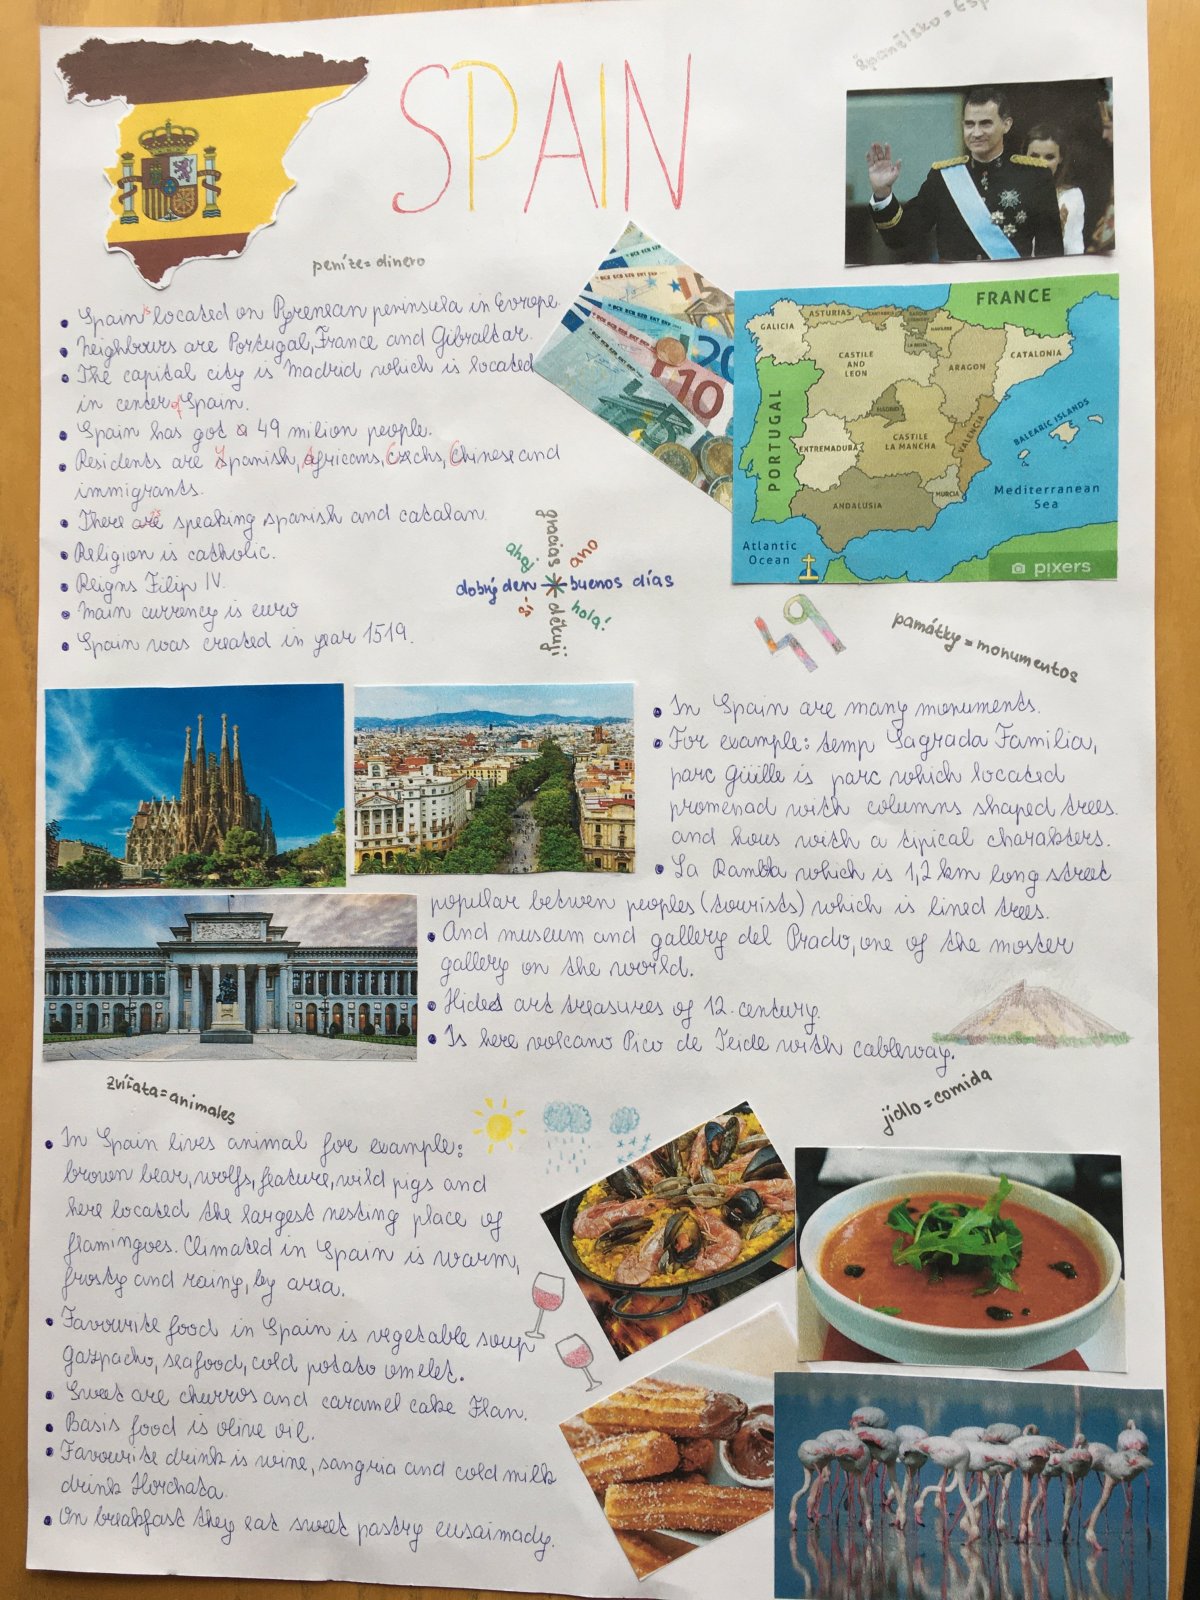 SPAIN
španělsko = Esp
peníze = dinero
• Spain is located on Pyrenean peninsula in Europe.
• Neighbours are Portugal, France and Gibraltar.
• The capital city is Madrid which is located
in center of Spain.
• Spain has got a 49 milion people.
• Residents are Spanish, Africans, Czechs, Chinese and
immigrants.
• There are speaking spanish and catalan.
• Religion is catholic.
• Reigns Filip IV.
• Main currency is euro
• Spain was created in year 1519.
20
10
FRANCE
GALICIA
ASTURIAS
CANTABRIA
NAVARRE
LA RIOJA
CASTILE
AND
LEON
ARAGON
CATALONIA
PORTUGAL
MADRID
EXTREMADURA
CASTILE
LA MANCHA
VALENCIA
BALEARIC ISLANDS
MURCIA
ANDALUSIA
Mediterranean
Sea
Atlantic
Ocean
pixers
gracias
ahoj
ano
dobrý den
buenos días
sí
hola!
děkuji
49
památky = monumentos
• In Spain are many monuments.
• For example: temp Sagrada Familia,
parc Güille is parc which located
promenad with columns shaped trees.
and hous with a tipical charakters.
• La Rambla which is 1,2 km long street
popular betwen peoples (tourists) which is lined trees.
• And museum and gallery del Prado, one of the moster
gallery on the world.
• Hided art treasures of 12. century.
• Is here volcano Pico de Teide with cableway.
zvířata = animales
jídlo = comida
• In Spain lives animal for example:
brown bear, wolfs, feature, wild pigs and
here located the largest nesting place of
flamingoes. Climated in Spain is warm,
frosty and rainy, by area.
• Favourite food in Spain is vegetable soup
gazpacho, seafood, cold potato omelet.
• Sweet are churros and caramel cake Flan.
• Basis food is olive oil.
• Favourite drink is wine, sangria and cold milk
drink Horchata.
• On breakfast they eat sweet pastry ensaimady.